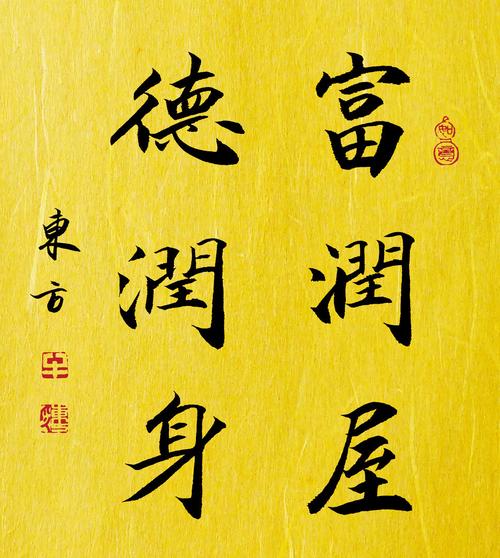 富潤屋
德潤身
東方